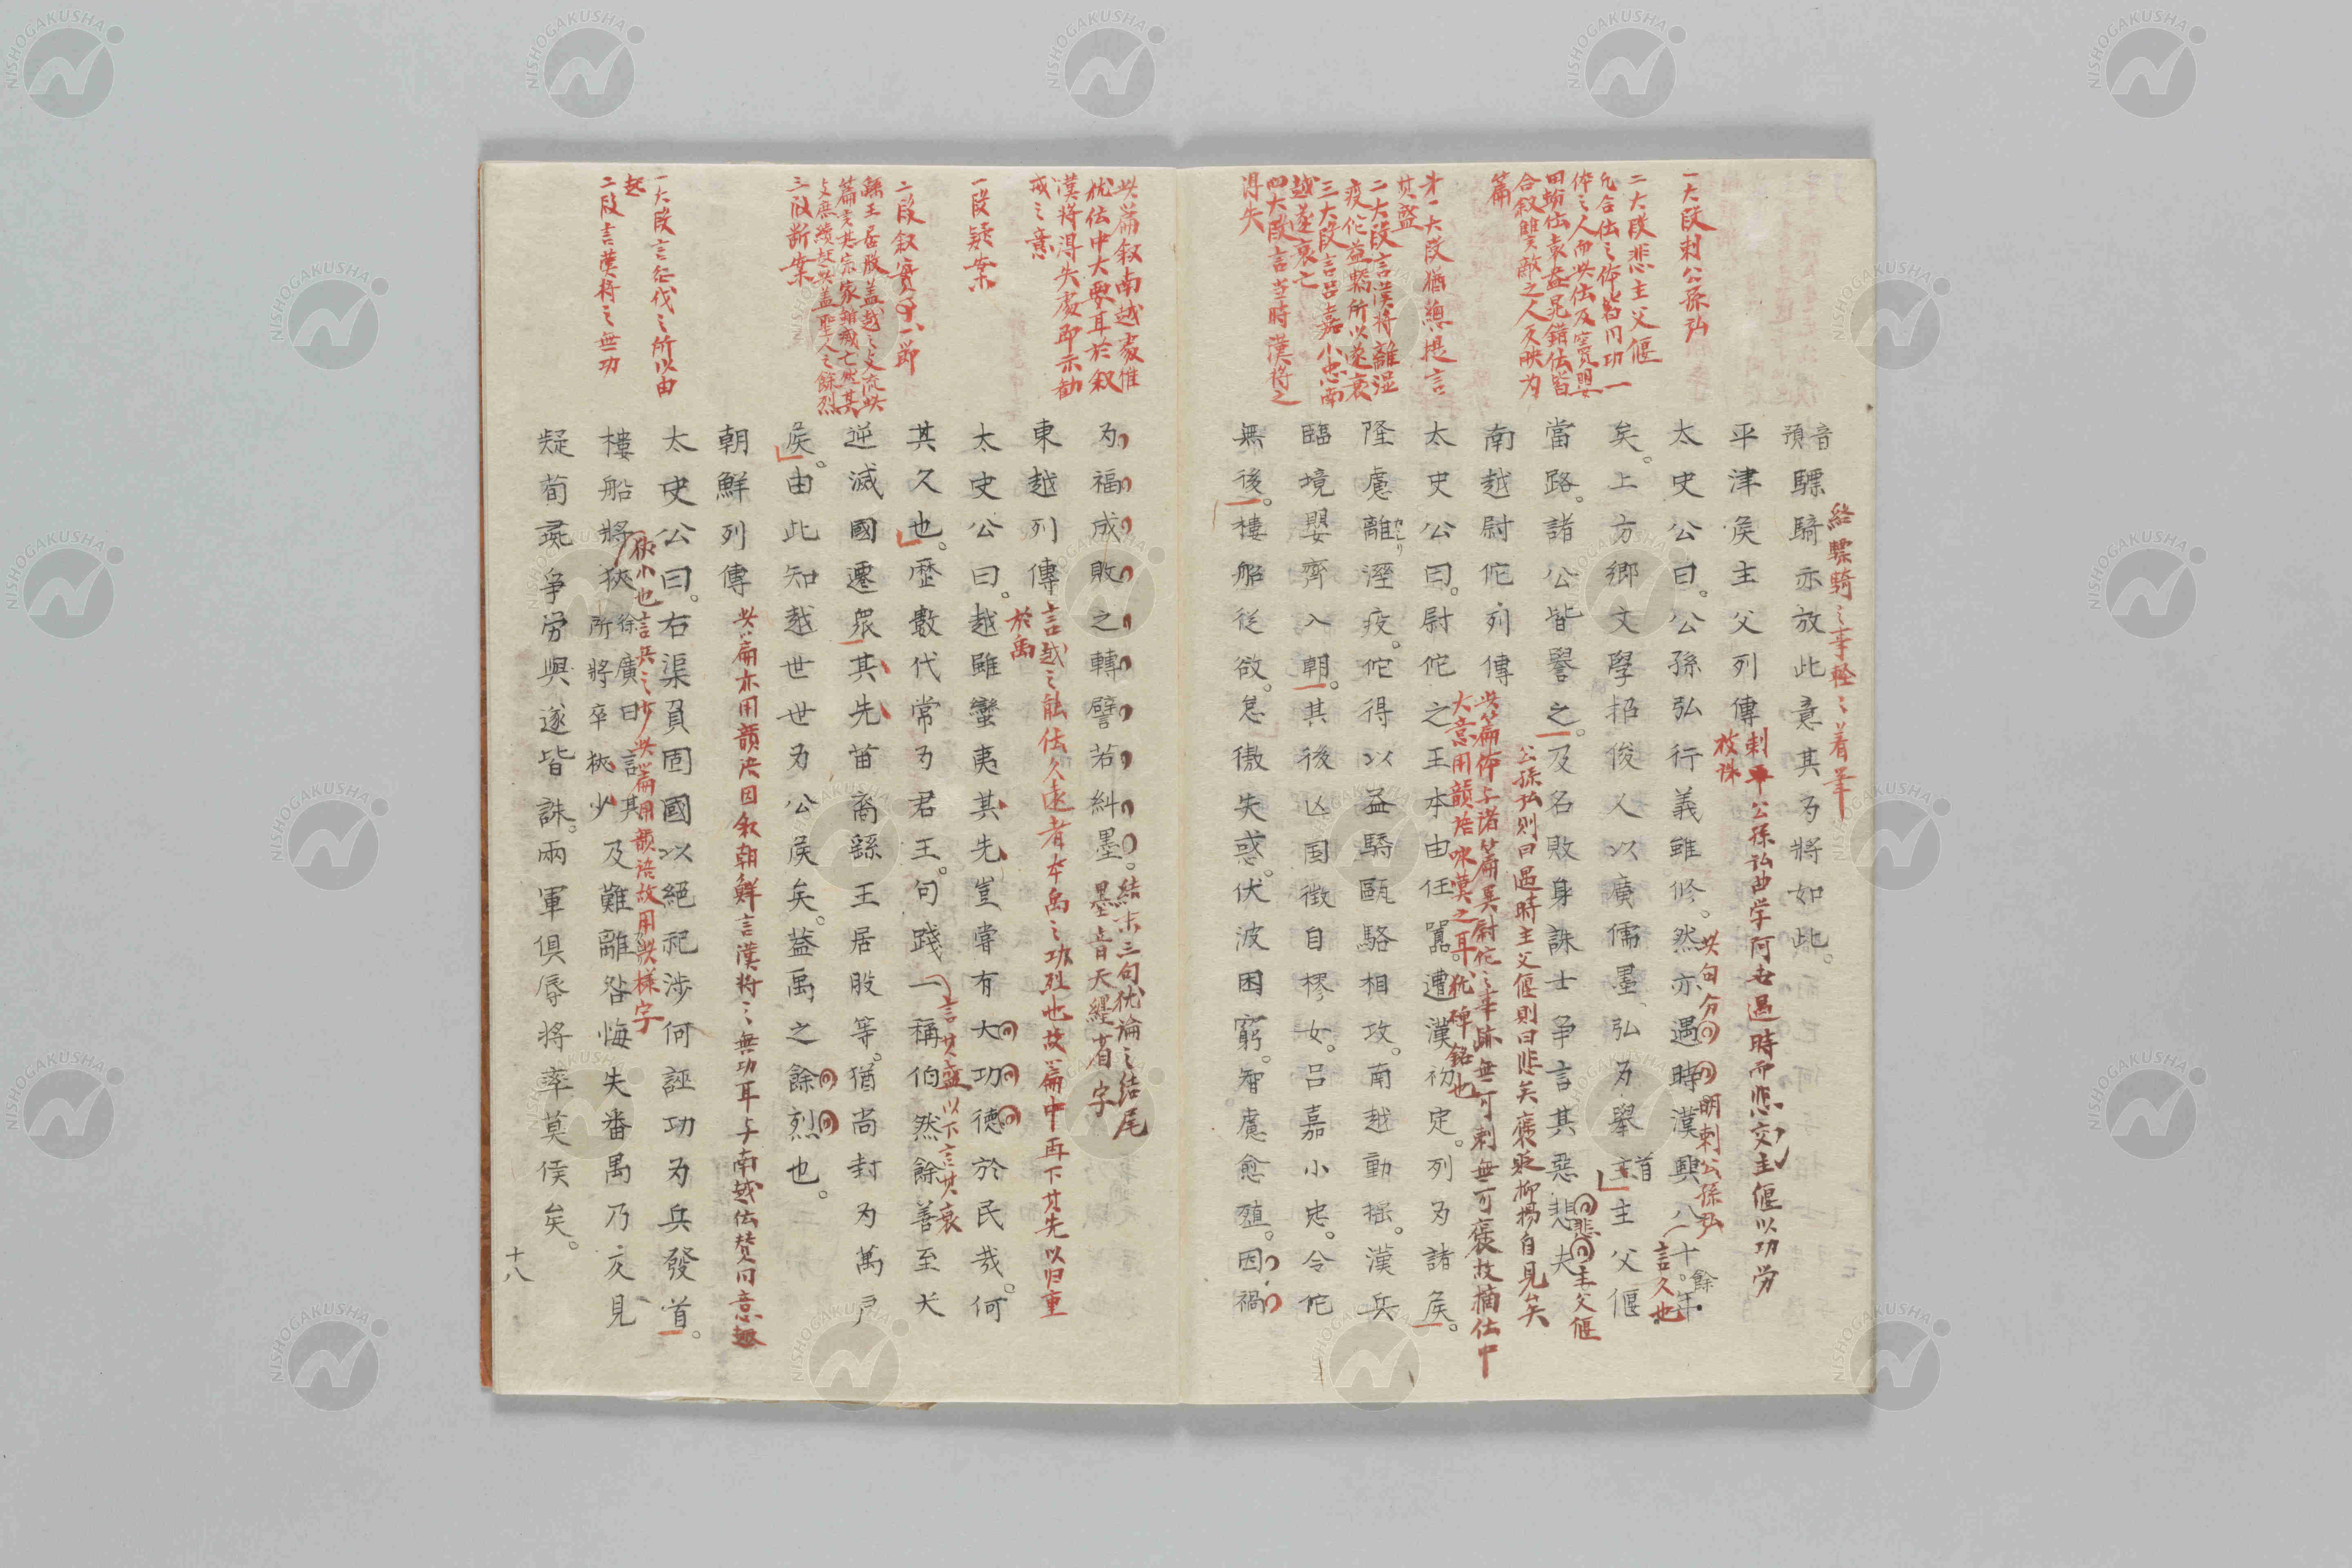 一大段刺公孫弘
二大段悲主父偃
合叙雙敵之人
篇
才一大段猶總提言
其盛
二大段言漢將離湿
疫佗益驕所以遂衰
三大段言呂嘉小忠南
越遂衰亡
四大段言当時漢將之
得失
音預驃騎亦放此意其为將如此。
終驃騎之事
平津矦主父列傳
刺平公孫弘曲学阿世遇時而悲交主偃以功労
被誅
太史公曰。公孫弘行義雖修。然亦遇時漢興八十餘年
此句分明刺公孫弘
言久也
矣。上方郷文學招俊乂以廣儒墨、弘为舉首主父偃
當路。諸公皆譽之。及名敗身誅士争言其惡悲夫
悲主父偃
公孫弘则曰遇時主父偃則曰悲矣褒貶抑揚自見矣
南越尉佗列傳
此篇作与諸篇異尉佗之事跡無可刺無可褒故摘伝中
大意用韻語咏漢之耳。犹碑銘也
太史公曰。尉佗之王本由任囂遭漢初定。列为諸矦。
隆慮離溼疫。佗得以益驕甌駱相攻。南越動揺。漢兵
臨境嬰齊入朝。其後亾国徴自樛女。呂嘉小忠。令佗
無後。樓船従欲。怠傲失惑。伏波困窮。智慮愈殖。因禍
此篇叙南越処惟
犹伝中大要耳於叙
漢將得失処即示勧
戒之意
一段疑案
二段叙實
三段断案
一大段言征伐之所以由
起
二段言漢將之無功
为福成敗之轉譬若糾墨。
結末三句犹論之結尾
墨音天纆省字
東越列傳
言越之能伝久遠者本禹之功烈也故篇中再下其先以归重
於禹
太史公曰。越雖蠻夷其先豈嘗有大功德於民哉。何
其久也。歷數代常为君王。句踐一稱伯然餘善至大
言其盛以下言其衰
逆滅國遷衆其先苗裔繇王居股等。猶尚封为萬户
矦。由此知越世世为公矦矣。蓋禹之餘烈也。
朝鮮列傳
此篇亦用韻决因叙朝鮮言漢將之無功耳与南越伝賛同意趣
太史公曰。右渠負固國以絕祀涉何誣功为兵發首。
狭小也言兵之少此篇用韻語故用此樣字
樓船將狹徐廣曰言其所將卒狹少及難離咎悔失番禺乃反見
疑荀彘争労與遂皆誅。兩軍俱辱将率莫侯矣。
十八